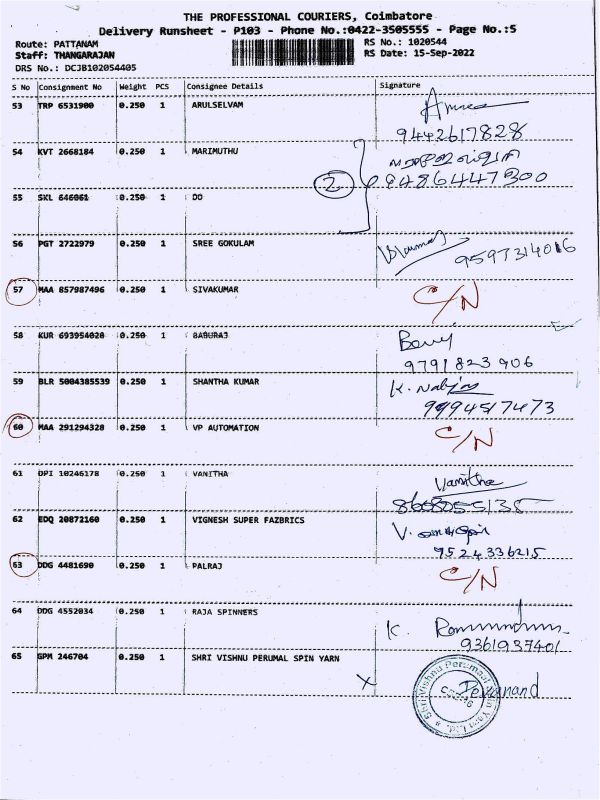 THE PROFESSIONAL COURIERS, Coimbatore
Delivery Runsheet - P103 - Phone No.:0422-3505555 - Page No.:5
Route: PATTANAM RS No.: 1020544
Staff: THANGARAJAN RS Date: 15-Sep-2022
DRS No.: DCJB102054405
S No Consignment No Weight PCS Consignee Details Signature
53 TRP 6531900 0.250 1 ARULSELVAM
9442617828
54 KVT 2668184 0.250 1 MARIMUTHU
2 9486447300
55 SKL 646061 0.250 1 DO
56 PGT 2722979 0.250 1 SREE GOKULAM
9597314016
57 MAA 857987496 0.250 1 SIVAKUMAR C/N
58 KUR 693954028 0.250 1 BABURAJ
9791823906
59 BLR 5004385539 0.250 1 SHANTHA KUMAR K.
9994517473
60 MAA 291294328 0.250 1 VP AUTOMATION C/N
61 DPI 10246178 0.250 1 VANITHA Vanitha
8668055135
62 EDQ 20872160 0.250 1 VIGNESH SUPER FAZBRICS V.
9524336215
63 DDG 4481690 0.250 1 PALRAJ C/N
64 DDG 4552034 0.250 1 RAJA SPINNERS K.
9361937401
65 GPM 246704 0.250 1 SHRI VISHNU PERUMAL SPIN YARN
X
Shri Vishnu Perumaal Spin Yarn Ltd.